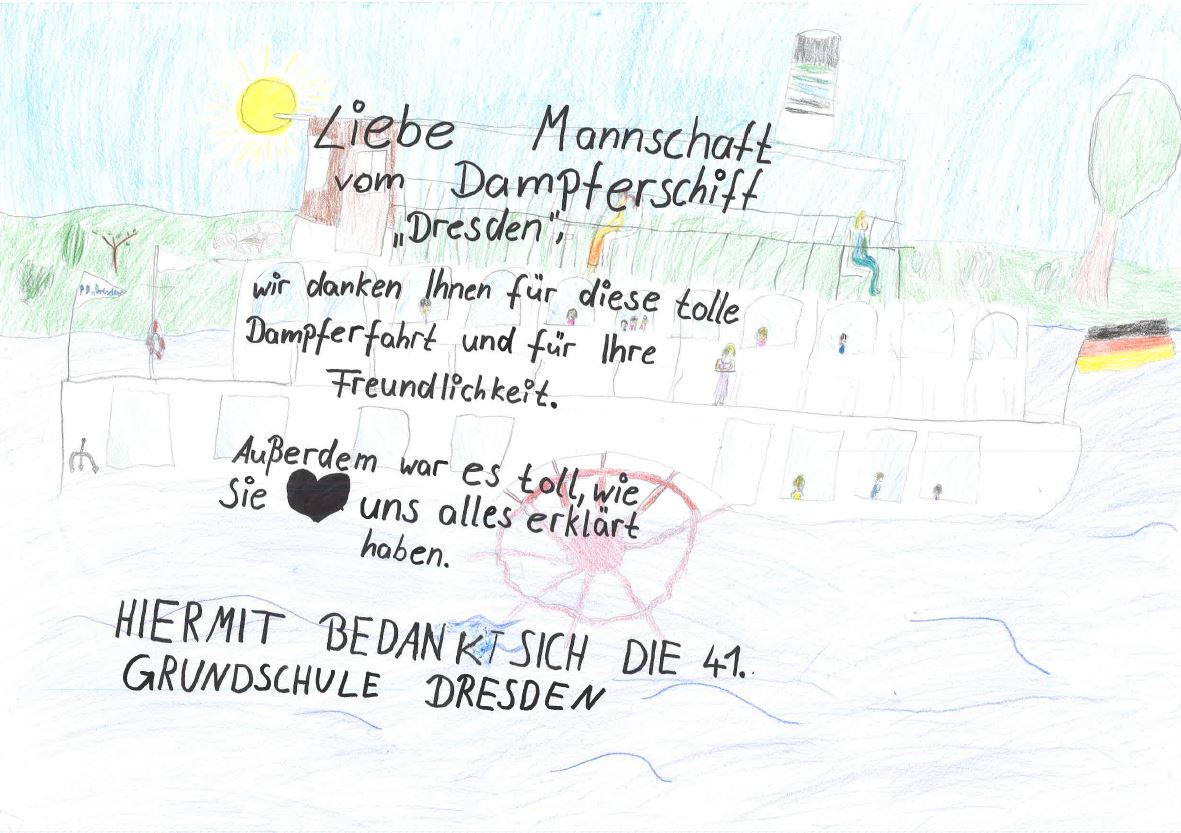 Liebe Mannschaft
vom Dampferschiff
„Dresden“,
wir danken Ihnen für diese tolle
Dampferfahrt und für Ihre
Freundlichkeit.
P.D. „Dresden“
Außerdem war es toll, wie
Sie uns alles erklärt
haben.
HIERMIT BEDANKT SICH DIE 41.
GRUNDSCHULE DRESDEN